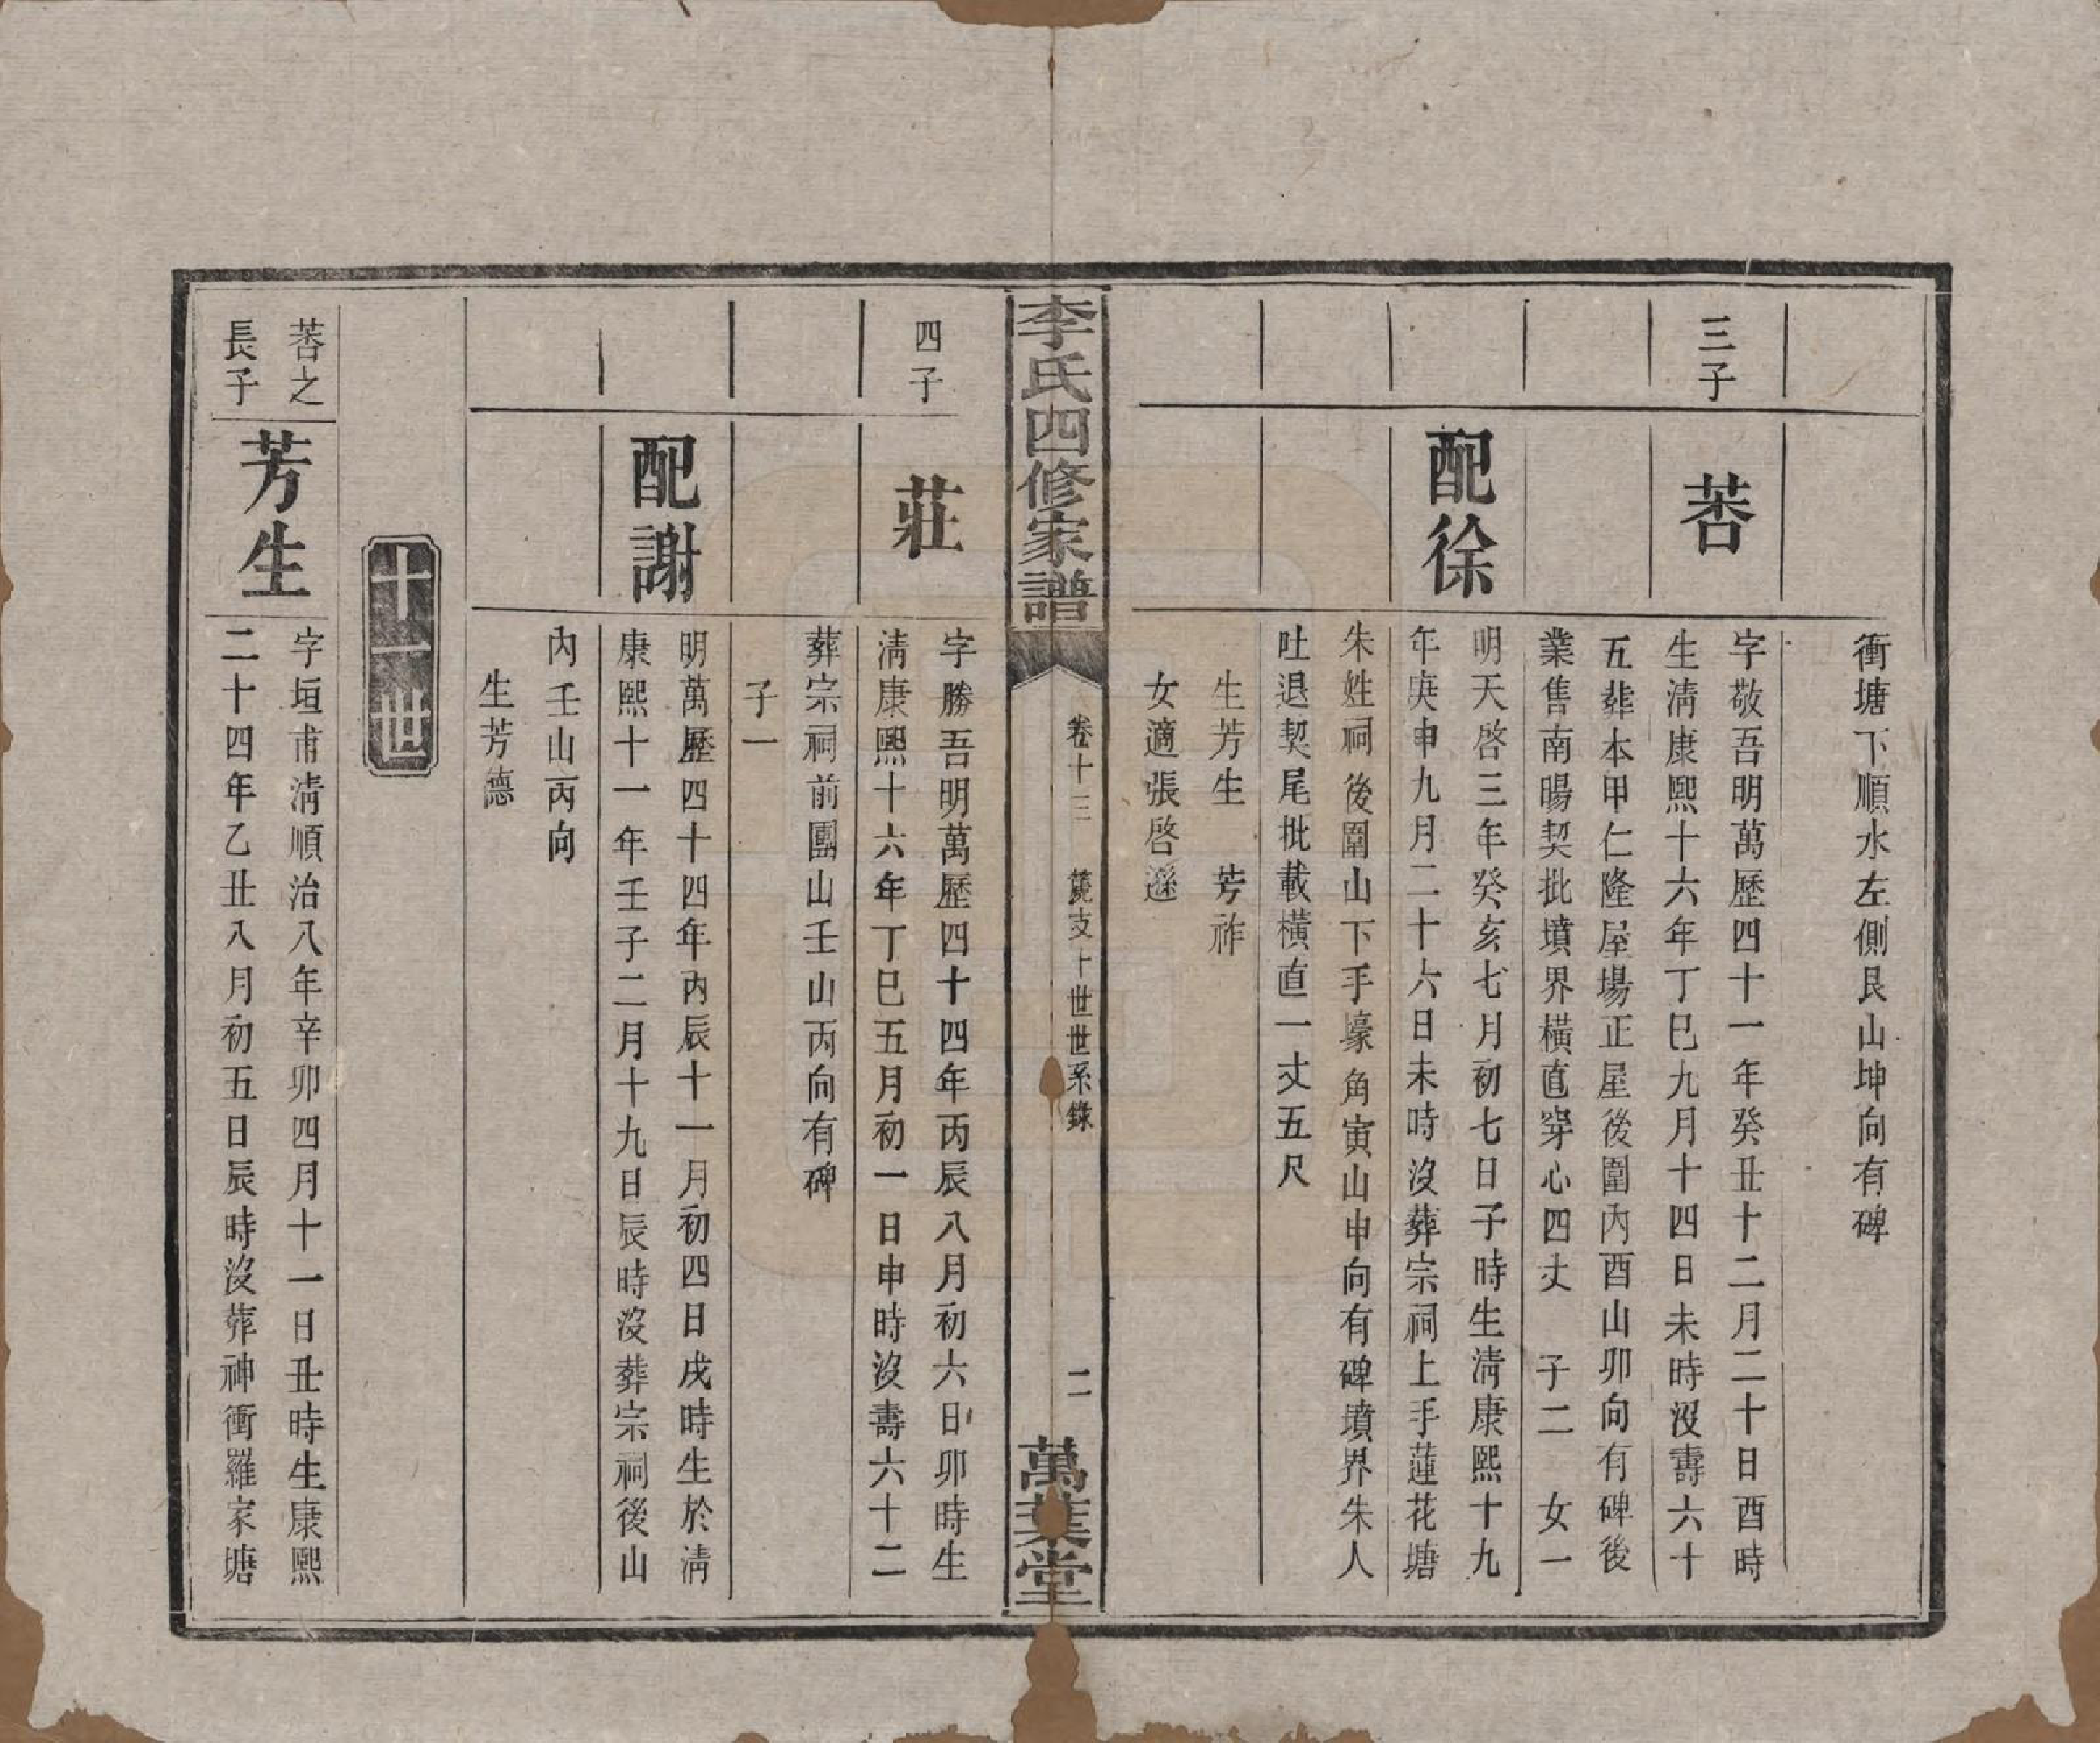 衝塘下順水左側艮山坤向有碑
三子
萶
字敬吾明萬歷四十一年癸丑十二月二十日酉時
生淸康熙十六年丁巳九月十四日未時沒壽六十
五葬本甲仁隆屋場正屋後圍內酉山卯向有碑後
業售南暘契批墳界橫直穿心四丈 子二 女一
配徐
明天啓三年癸亥七月初七日子時生淸康熙十九
年庚申九月二十六日未時沒葬宗祠上手蓮花塘
朱姓祠後圍山下手壕角寅山申向有碑墳界朱人
吐退契尾批載橫直一丈五尺
生芳生 芳祚
女適張啓遜
李氏四修家譜
卷十三 支十世世系錄
二
萬葉堂
四子
莊
字勝吾明萬歷四十四年丙辰八月初六日卯時生
淸康熙十六年丁巳五月初一日申時沒壽六十二
葬宗祠前團山壬山丙向有碑
子一
配謝
明萬歷四十四年丙辰十一月初四日戌時生於淸
康熙十一年壬子二月十九日辰時沒葬宗祠後山
內壬山丙向
生芳德
十一世
萶之
長子
芳生
字垣甫淸順治八年辛卯四月十一日丑時生康熙
二十四年乙丑八月初五日辰時沒葬神衝羅家塘